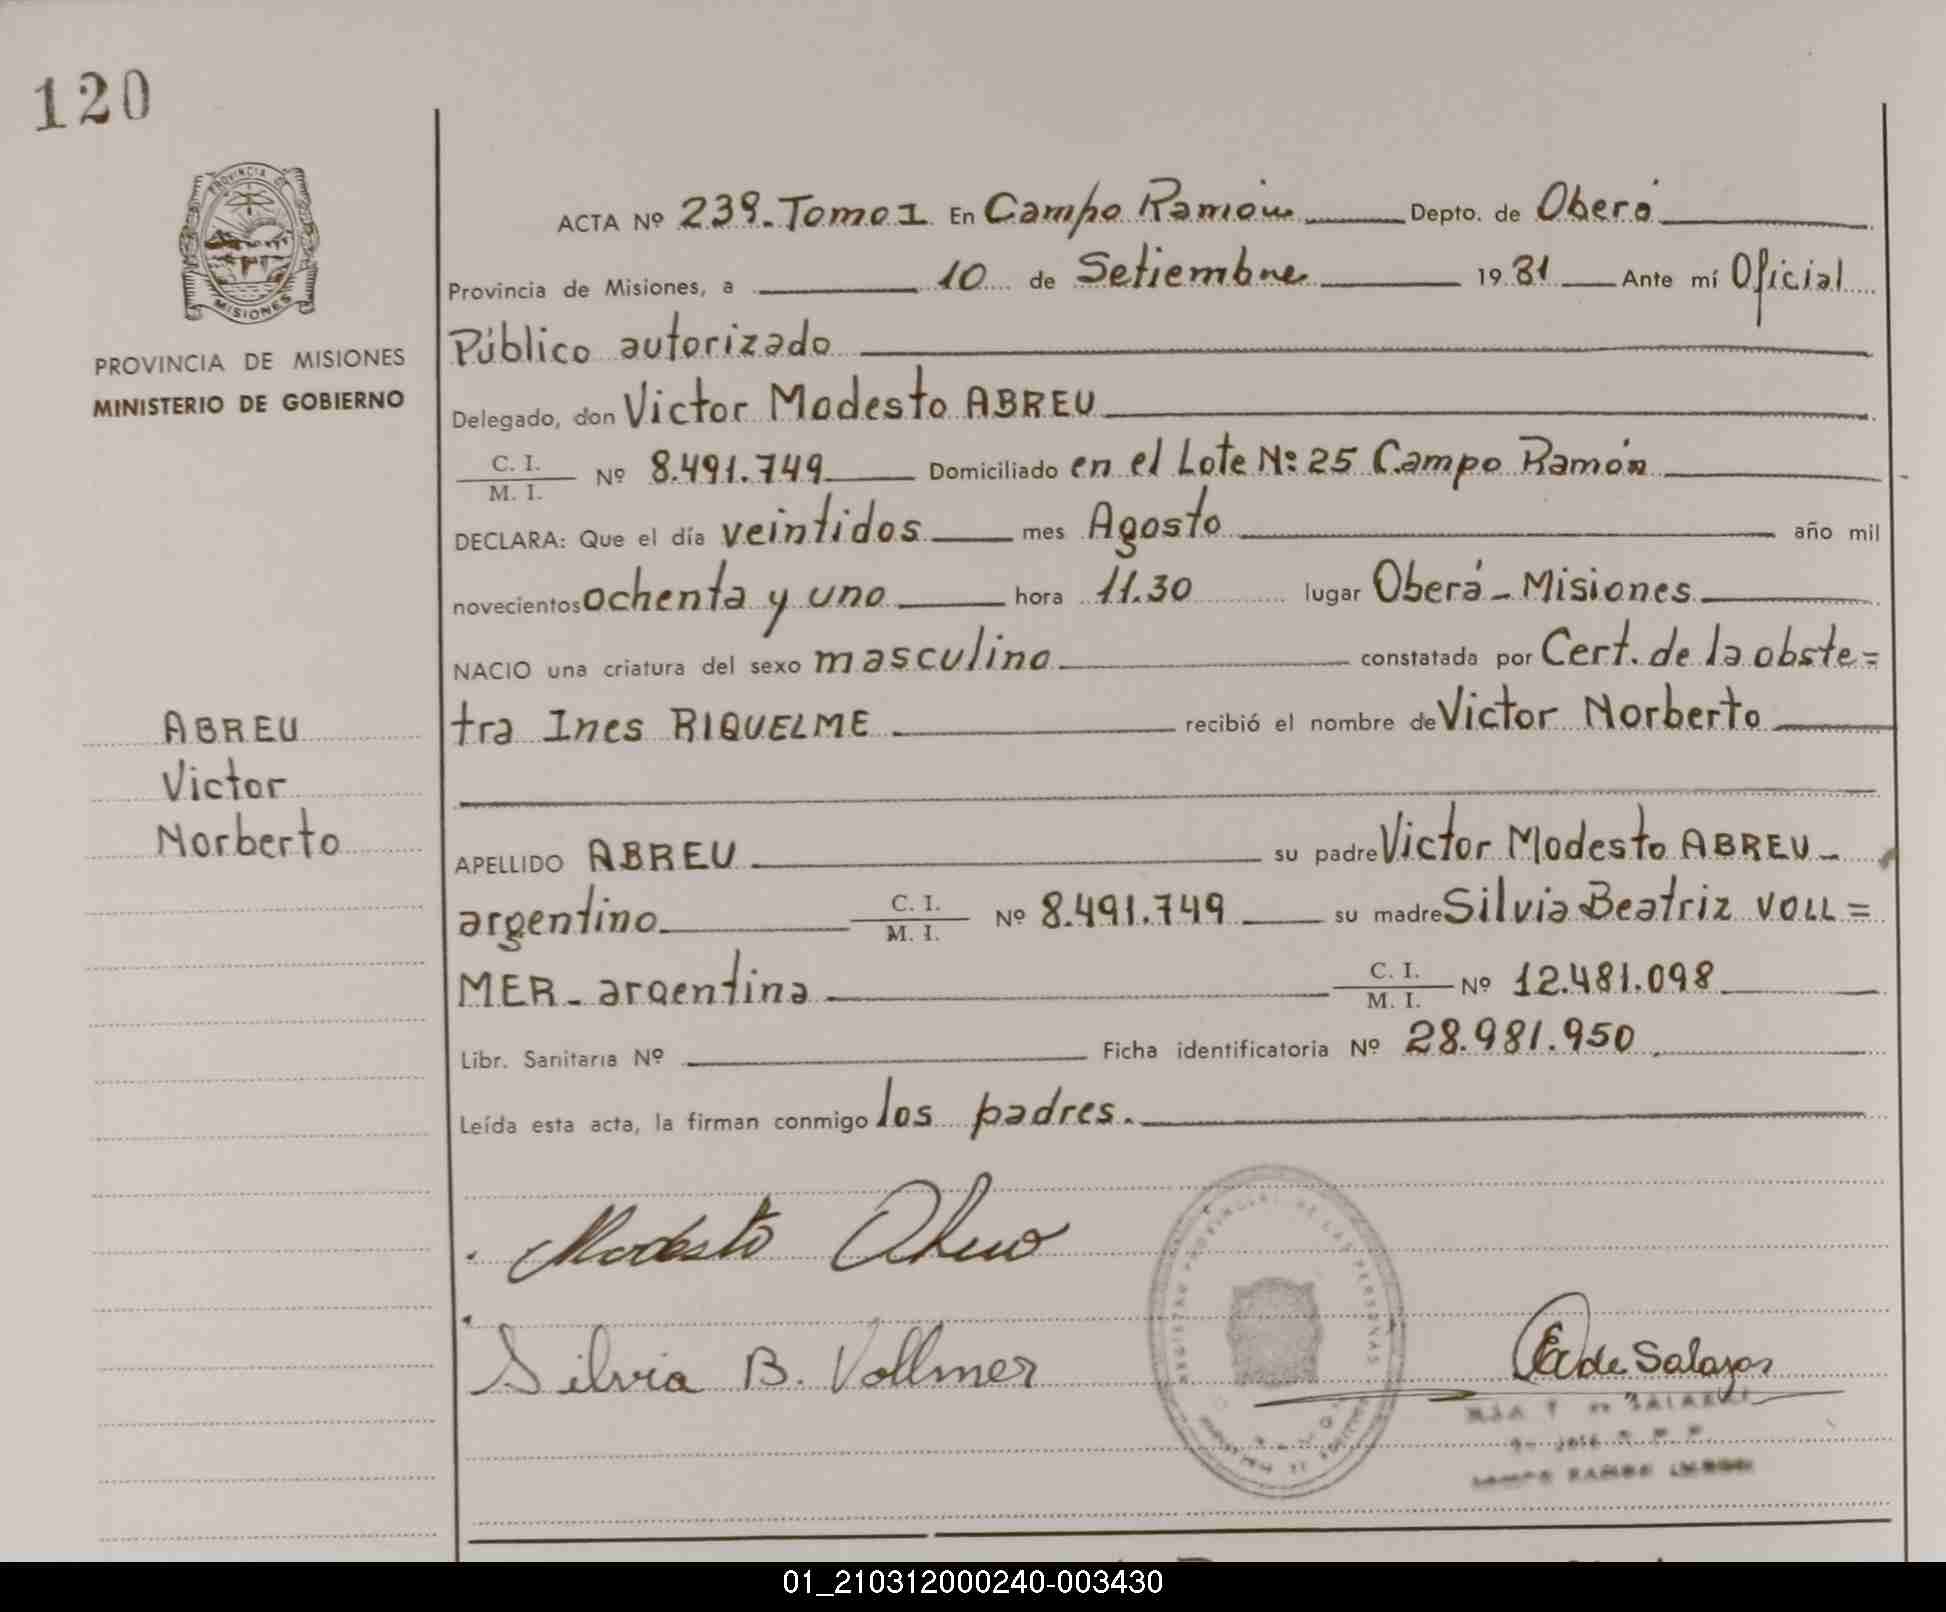 120
PROVINCIA DE
MISIONES
PROVINCIA DE MISIONES
MINISTERIO DE GOBIERNO
ACTA Nº 239. Tomo 1 En Campo Ramón Depto. de Oberá
Provincia de Misiones, a 10 de Setiembre 1981 Ante mí Oficial
Público autorizado
Delegado, don Victor Modesto ABREU
C. I.
M. I. Nº 8.491.749 Domiciliado en el Lote Nº 25 Campo Ramón
DECLARA: Que el día veintidos mes Agosto año mil
novecientos ochenta y uno hora 11.30 lugar Oberá - Misiones
NACIO una criatura del sexo masculino constatada por Cert. de la obste=
tra Ines RIQUELME recibió el nombre de Victor Norberto
ABREU
Victor
Norberto
APELLIDO ABREU su padre Victor Modesto ABREU -
argentino C. I. M. I. Nº 8.491.749 su madre Silvia Beatriz VOLL=
MER - argentina C. I. M. I. Nº 12.481.098
Libr. Sanitaria Nº Ficha identificatoria Nº 28.981.950
Leída esta acta, la firman conmigo los padres.
Modesto Abreu
REGISTRO PROVINCIAL DE LAS PERSONAS
Silvia B. Vollmer
de Salazar
CAMPO RAMON
01_210312000240-003430